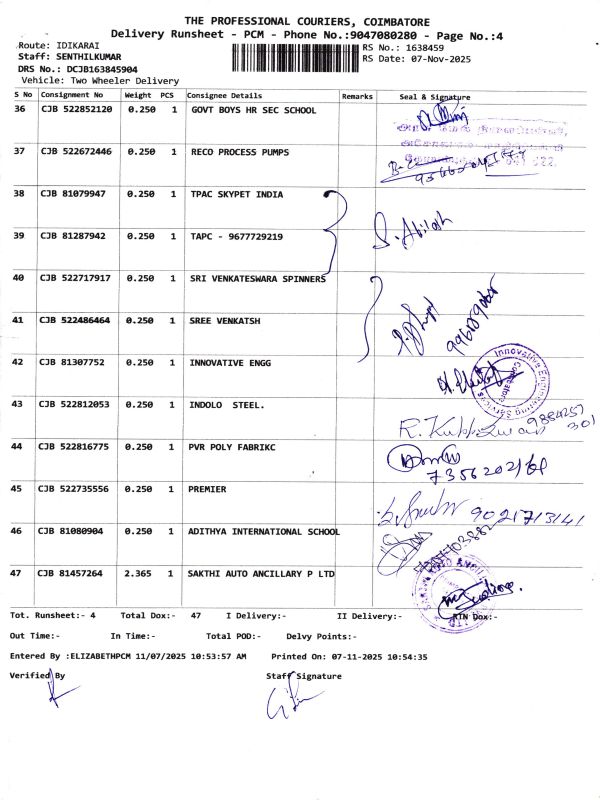 THE PROFESSIONAL COURIERS, COIMBATORE
Delivery Runsheet - PCM - Phone No.:9047080280 - Page No.:4
Route: IDIKARAI RS No.: 1638459
Staff: SENTHILKUMAR RS Date: 07-Nov-2025
DRS No.: DCJB163845904
Vehicle: Two Wheeler Delivery
S No Consignment No Weight PCS Consignee Details Remarks Seal & Signature
36 CJB 522852120 0.250 1 GOVT BOYS HR SEC SCHOOL
37 CJB 522672446 0.250 1 RECO PROCESS PUMPS
38 CJB 81079947 0.250 1 TPAC SKYPET INDIA
39 CJB 81287942 0.250 1 TAPC - 9677729219
S. Abilash
40 CJB 522717917 0.250 1 SRI VENKATESWARA SPINNERS
41 CJB 522486464 0.250 1 SREE VENKATSH
42 CJB 81307752 0.250 1 INNOVATIVE ENGG
Innovative Engineering Services
Coimbatore
43 CJB 522812053 0.250 1 INDOLO STEEL.
9884257
301
44 CJB 522816775 0.250 1 PVR POLY FABRIKC
45 CJB 522735556 0.250 1 PREMIER
9021713141
46 CJB 81080904 0.250 1 ADITHYA INTERNATIONAL SCHOOL
47 CJB 81457264 2.365 1 SAKTHI AUTO ANCILLARY P LTD
Tot. Runsheet:- 4 Total Dox:- 47 I Delivery:- II Delivery:- RTN Dox:-
Out Time:- In Time:- Total POD:- Delvy Points:-
Entered By :ELIZABETHPCM 11/07/2025 10:53:57 AM Printed On: 07-11-2025 10:54:35
Verified By Staff Signature